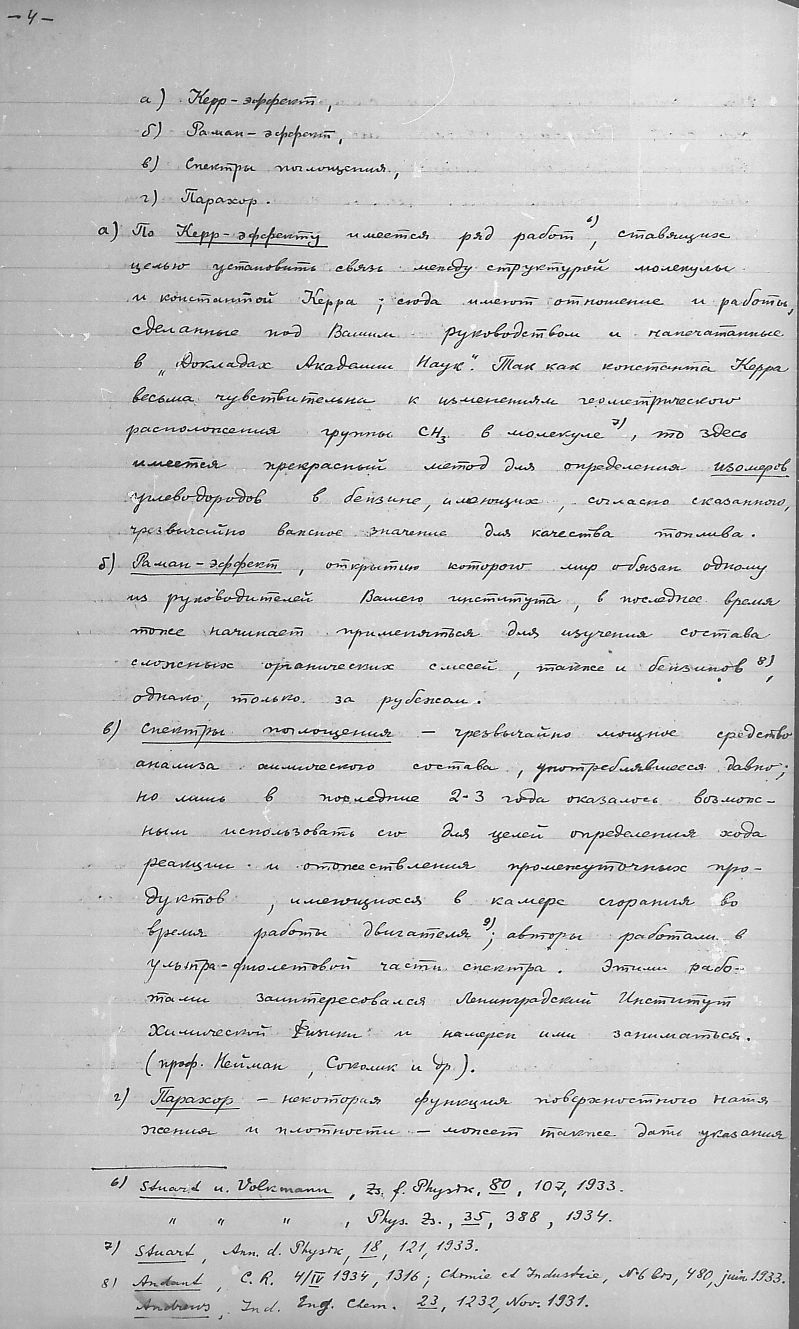 – 4 –
а) Керр-эффект,
б) Раман-эффект,
в) Спектры поглощения,
г) Парахор.
а) По Керр-эффекту имеется ряд работ 6), ставящих
целью установить связь между структурой молекулы
и константой Керра; сюда имеют отношение и работы,
сделанные под Вашим руководством и напечатанные
в „Докладах Академии Наук". Так как константа Керра
весьма чувствительна к изменениям геометрического
расположения группы CH3 в молекуле 7), то здесь
имеется прекрасный метод для определения изомеров
углеводородов в бензине, имеющих, согласно сказанного,
чрезвычайно важное значение для качества топлива.
б) Раман-эффект, открытию которого мир обязан одному
из руководителей Вашего института, в последнее время
тоже начинает применяться для изучения состава
сложных органических смесей, также и бензинов 8),
однако, только за рубежом.
в) Спектры поглощения – чрезвычайно мощное средство
анализа химического состава, употреблявшееся давно;
но лишь в последние 2-3 года оказалось возмож-
ным использовать его для целей определения хода
реакции и отожествления промежуточных про-
дуктов, имеющихся в камере сгорания во
время работы двигателя 9); авторы работали в
ультра-фиолетовой части спектра. Этими рабо-
тами заинтересовался Ленинградский Институт
Химической Физики и намерен ими заниматься.
(проф. Нейман, Соколик и др).
г) Парахор – некоторая функция поверхностного натя
жения и плотности – может также дать указания
6) Stuard u. Volkmann, Zs. f. Physik, 80, 107, 1933.
" " " , Phys. Zs., 35, 388, 1934.
7) Stuart, Ann. d. Physik, 18, 121, 1933.
8) Andant, C. R. 4/IV 1934, 1316; Chimie et Industrie, №6 bis, 480, juin 1933.
Andrews, Ind. Eng. Chem. 23, 1232, Nov. 1931.